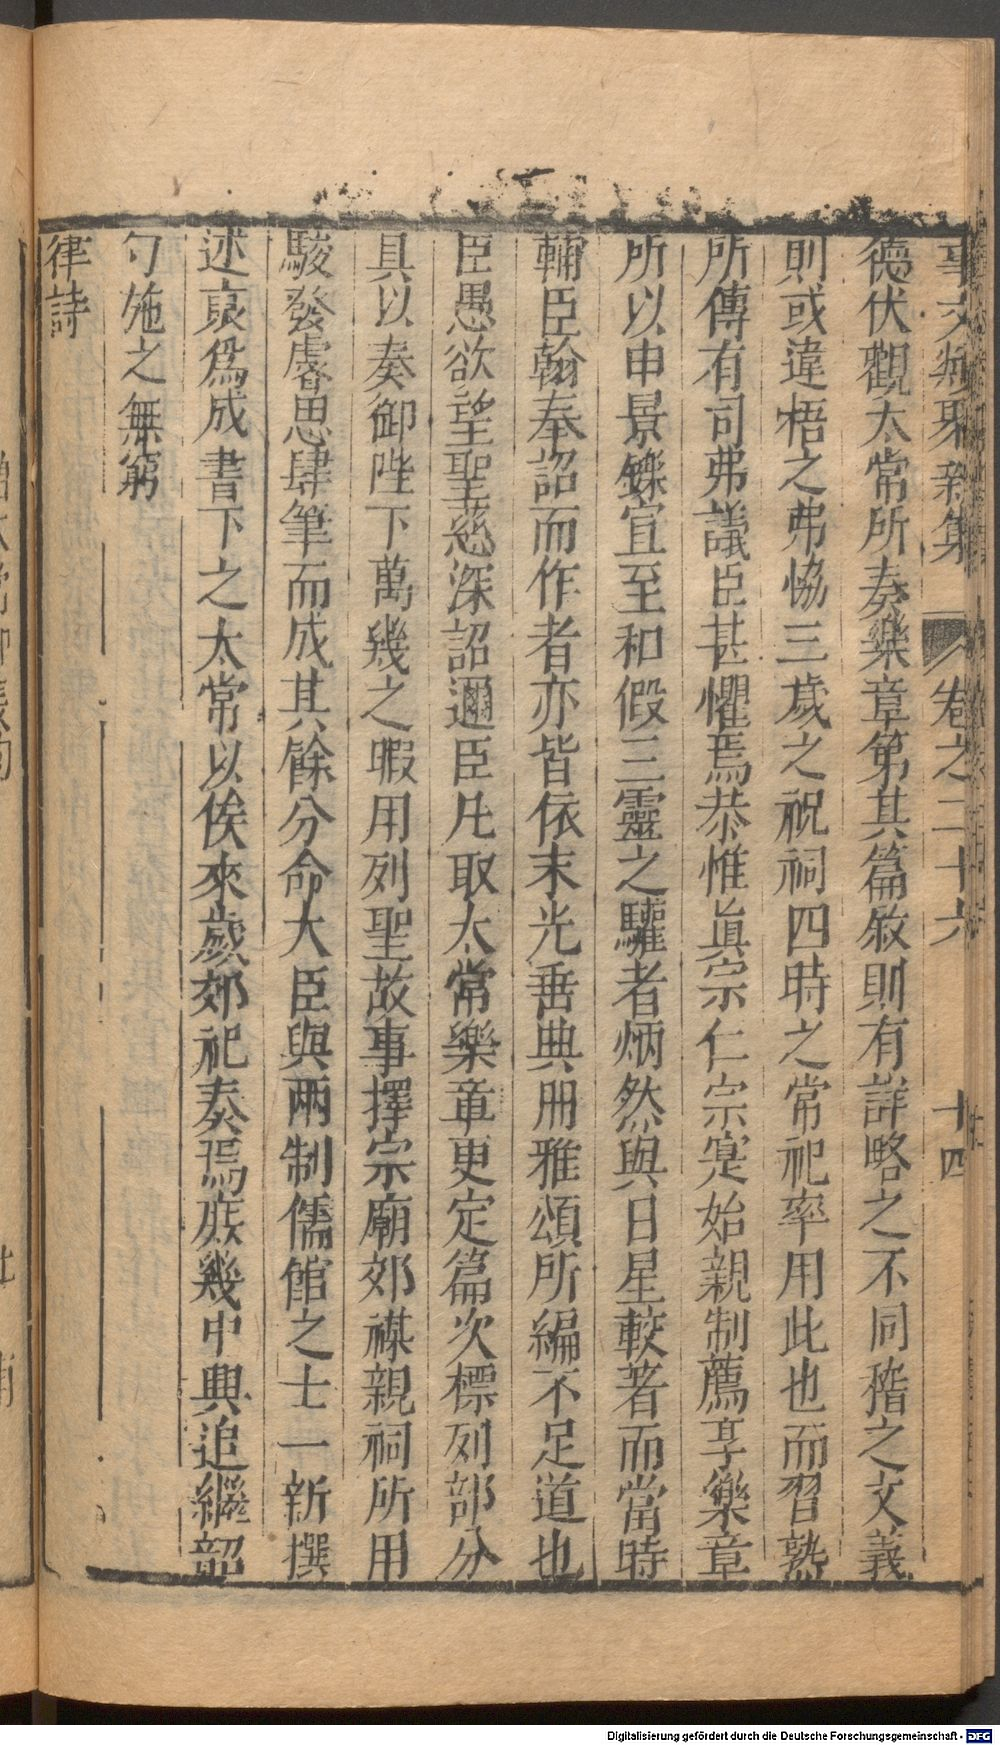 事文類聚新集 卷之二十六 十四
德伏觀太常所奏樂章第其篇敘則有詳略之不同稽之文義
則或違悟之弗恊三歲之祝祠四時之常祀率用此也而習熟
所傳有司弗議臣甚懼焉恭惟眞宗仁宗寔始親制薦享樂章
所以申景鑠宜至和假三靈之驩者炳然與日星較著而當時
輔臣翰奉詔而作者亦皆依末光垂典冊雅頌所編不足道也
臣愚欲望聖慈深詔邇臣凡取太常樂章更定篇次標列部分
具以奏御陛下萬幾之暇用列聖故事擇宗廟郊禖親祠所用
駿發睿思肆筆而成其餘分命大臣與兩制儒館之士一新撰
述裒爲成書下之太常以俟來歲郊祀奏焉庶幾中興追繼韶
勺施之無窮
律詩
Digitalisierung gefördert durch die Deutsche Forschungsgemeinschaft - DFG